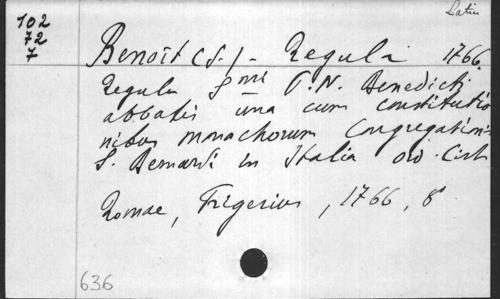 Latin
102
72
7
Benoît (S.) - Regula 1766.
Regula Smi P. N. Benedicti
abbatis una cum constitutio
nibus monachorum Congregation:
S. Bernardi in Italia ord. Cist
Romae, Frigerius, 1766, 8°
636